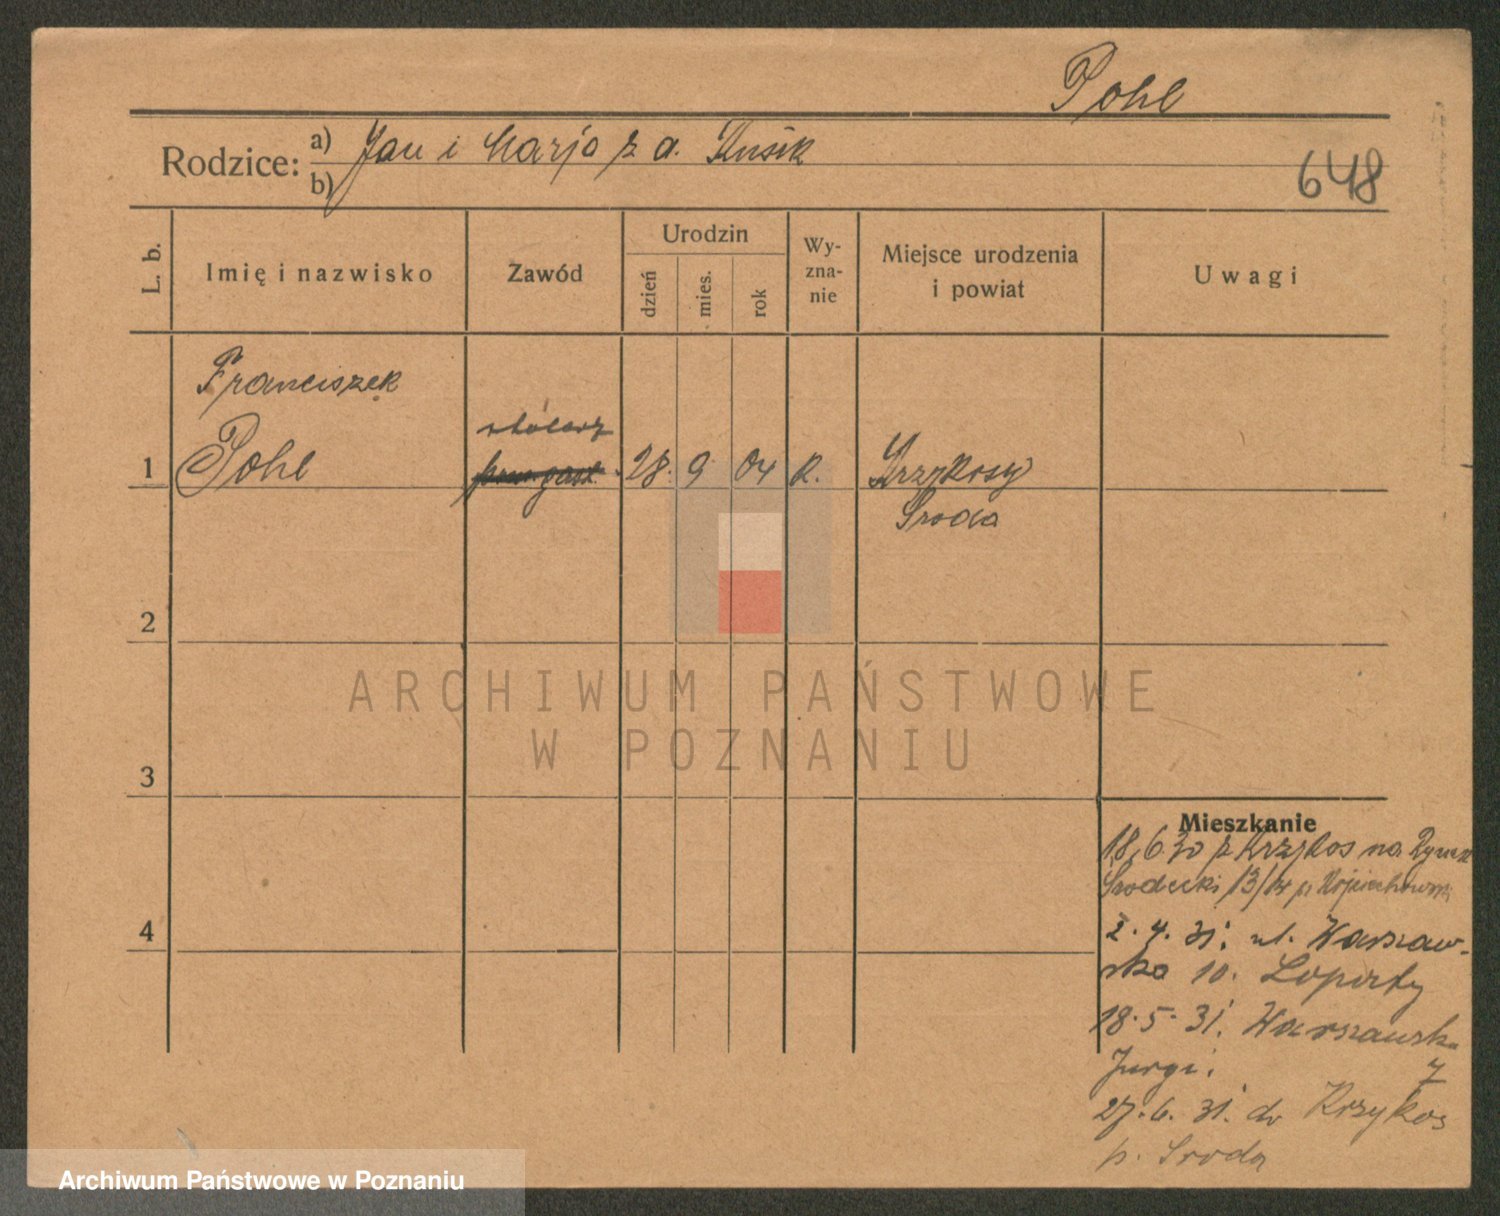 Pohl
Rodzice: a) Jan i Marja z d. Kusik
b)
648
L. b.
Imię i nazwisko
Zawód
Urodzin
dzień
mies.
rok
Wy-
zna-
nie
Miejsce urodzenia
i powiat
Uwagi
Franciszek
stolarz
1 Pohl 28. 9 04 R. Krzykosy
Środa
2
3
4
Mieszkanie
18.6.30 z Krzykos na Rynek
Środecki 13/14 p. Wojciechowski
2.4.31. ul. Warszaw-
ska 10. Loporty
18.5.31. Warszawska
Jurgi. 7
27.6.31. do Krzykos
p. Środa
ARCHIWUM PAŃSTWOWE
W POZNANIU
Archiwum Państwowe w Poznaniu